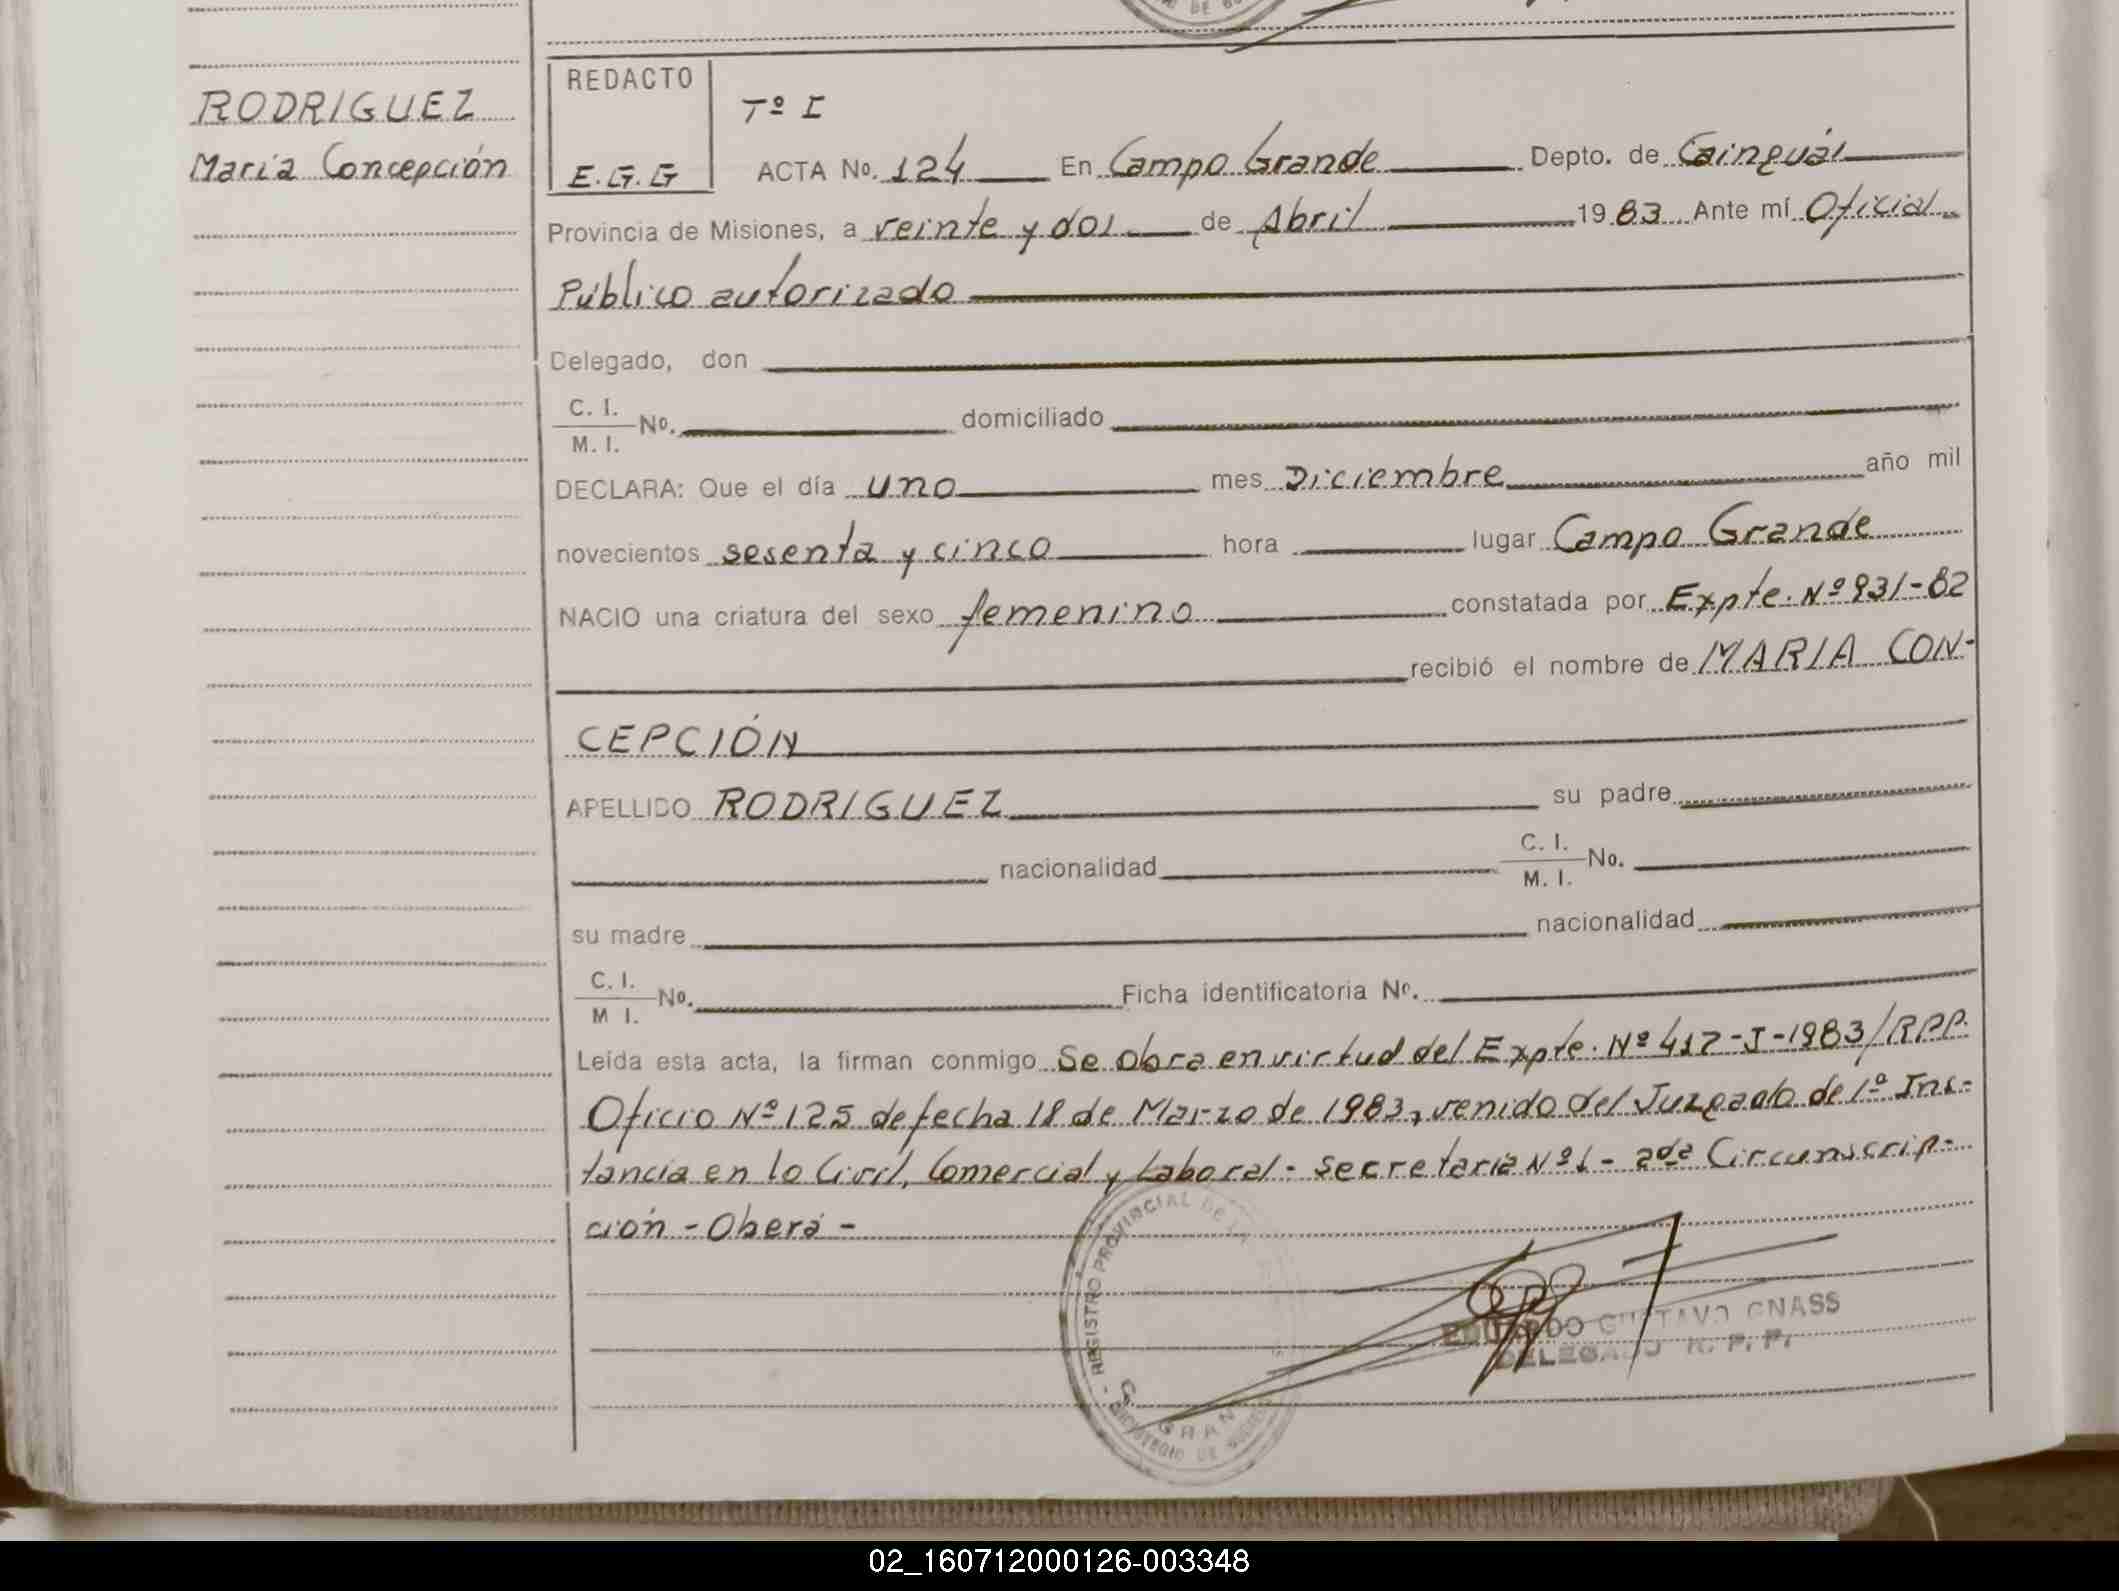 RODRIGUEZ
Maria Concepción
REDACTO
E.G.G
Tº I
ACTA No. 124 En Campo Grande Depto. de Cainguás
Provincia de Misiones, a veinte y dos de Abril 1983 Ante mí Oficial
Público autorizado
Delegado, don
C. I.
M. I. No. domiciliado
DECLARA: Que el día uno mes Diciembre año mil
novecientos sesenta y cinco hora lugar Campo Grande
NACIO una criatura del sexo femenino constatada por Expte. Nº 931-82
recibió el nombre de MARIA CON-
CEPCIÓN
APELLIDO RODRIGUEZ su padre
nacionalidad C. I.
M. I. No.
su madre nacionalidad
C. I.
M I. No. Ficha identificatoria No.
Leída esta acta, la firman conmigo Se obra en virtud del Expte. Nº 417-J-1983/RPP.
Oficio Nº 125 de fecha 18 de Marzo de 1983, venido del Juzgado de 1º Ins-
tancia en lo Civil, Comercial y Laboral - Secretaria Nº 1 - 2da Circunscrip-
ción - Oberá -
REGISTRO PROVINCIAL DE
EDUARDO GUSTAVO GNASS
DELEGADO R. P. P.
02_160712000126-003348